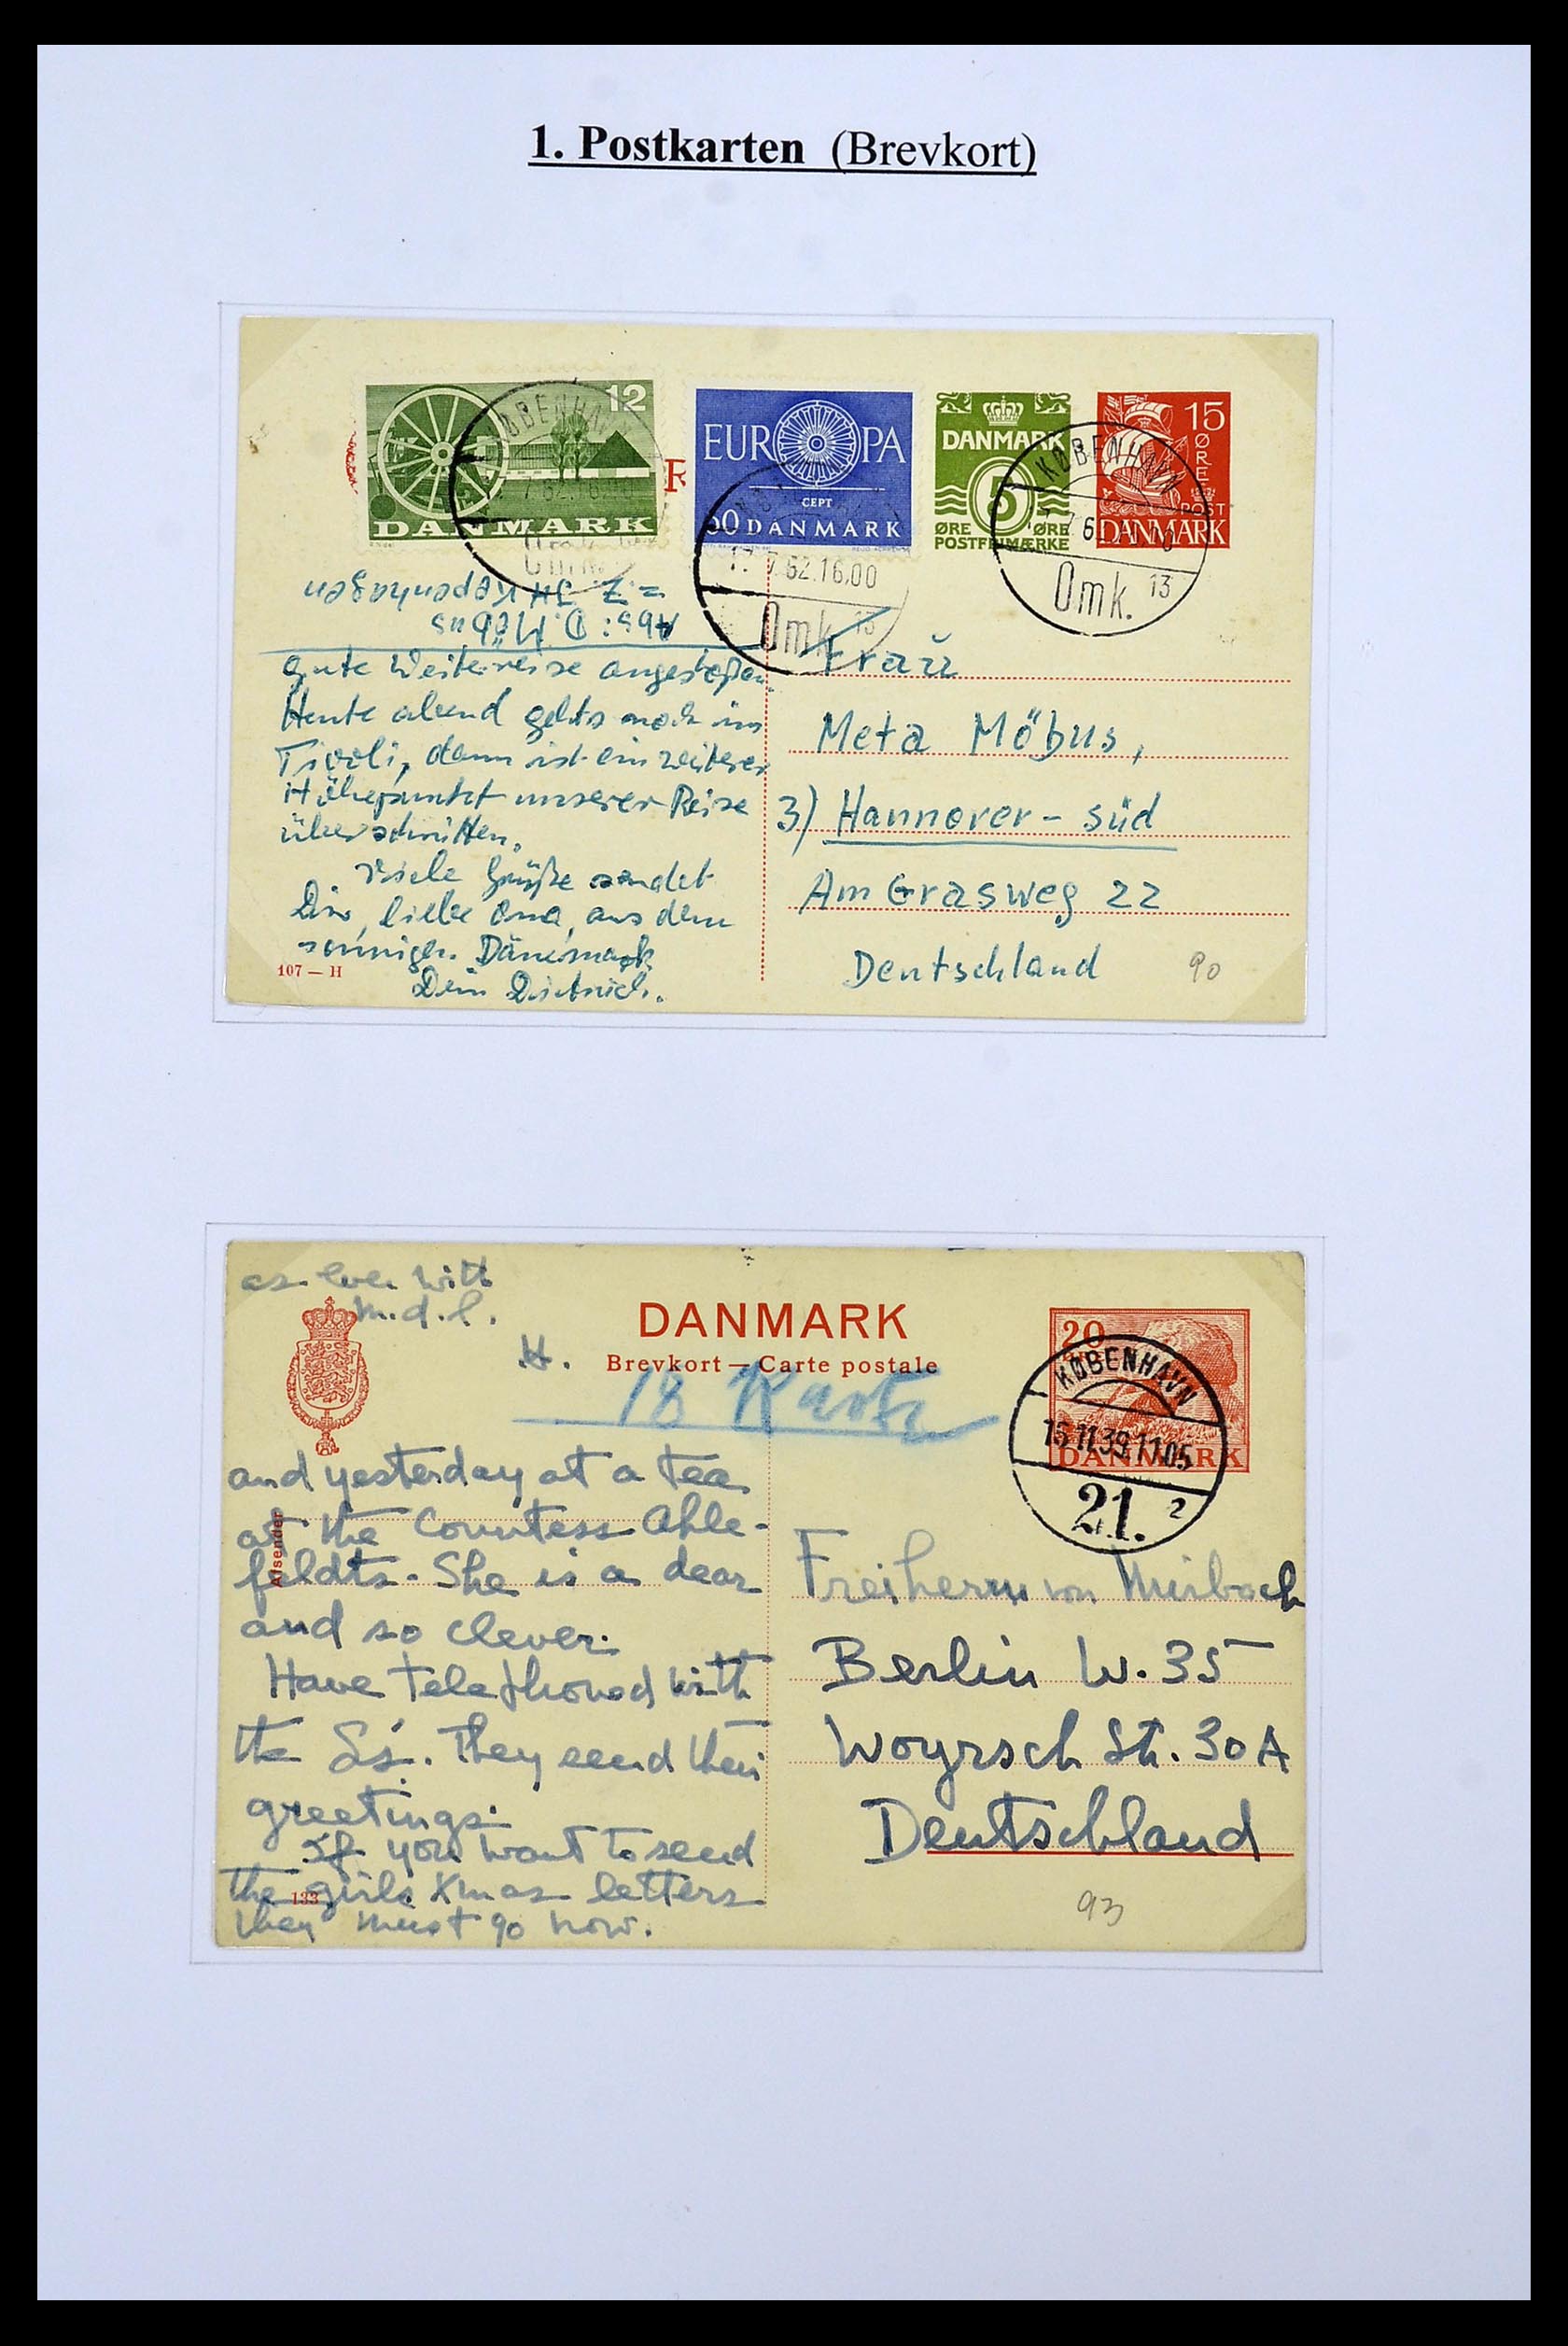 1. Postkarten (Brevkort)
12
DANMARK
KØBENHAVN
EUROPA
CEPT
60 DANMARK
17.7.62.16.00
Omk. 13
DANMARK
5
ØRE ØRE
POSTFRIMÆRKE
15
ØRE
POST
DANMARK
KØBENHAVN
Omk. 13
Abs: D. Möbus
z. Z. Kopenhagen
gute Weiterreise angestoßen.
Heute abend gehts noch ins
Tivoli, dann ist ein weiterer
Höhepunkt unserer Reise
überschritten.
Viele Grüße sendet
Dir, liebe Oma, aus dem
sonnigen Dänemark
Dein Dietrich.
107 — H
Frau
Meta Möbus,
3) Hannover - Süd
Am Grasweg 22
Deutschland
90
as ever with
m.d.l.
H.
DANMARK
Brevkort — Carte postale
18 Karte
20
DANMARK
KØBENHAVN
15.11.39.11.05
21. 2
Afsender
and yesterday at a tea
at the Countess Ahle-
feldts. She is a dear
and so clever.
Have telephoned with
the S's. They send their
greetings.
If you want to send
the girls Xmas letters
they must go now.
133
Freiherrn von Mirbach
Berlin W. 35
Woyrsch Str. 30A
Deutschland
93